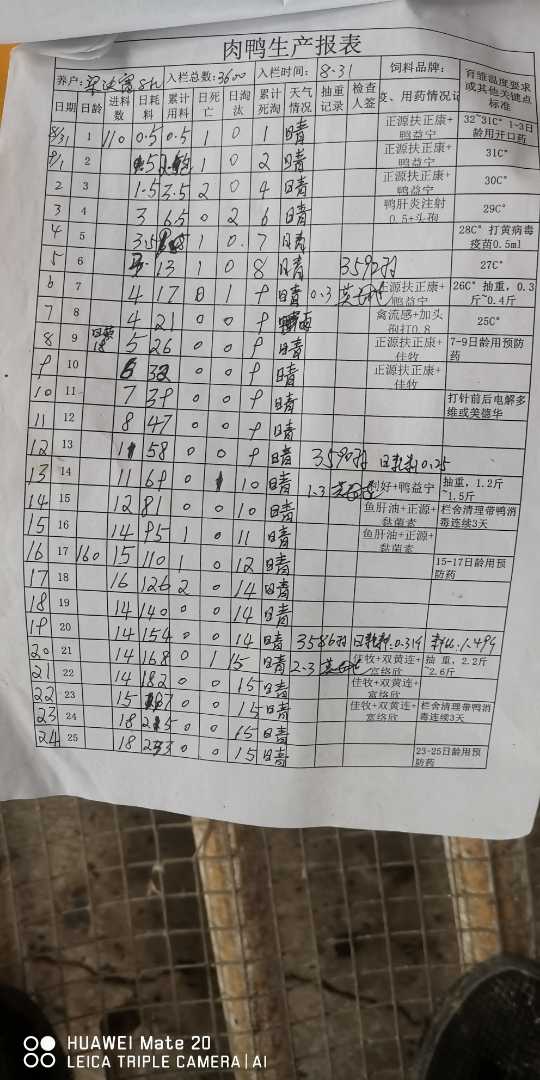 肉鸭生产报表
养户: 入栏总数:3600 入栏时间: 8.31 饲料品牌: 育雏温度要求或其他关键点标准
日期 日龄 进料数 日耗料 累计用料 日死亡 日淘汰 累计死淘 天气情况 抽重记录 检查人签 疫、用药情况记
8/31 1 110 0.5 0.5 1 0 1 晴 正源扶正康+鸭益宁 32~31C° 1-3日龄用开口药
9/1 2 0 0 2 晴 正源扶正康+鸭益宁 31C°
2 3 1.5 3.5 2 0 4 晴 正源扶正康+鸭益宁 30C°
3 4 3 6.5 0 2 6 晴 鸭肝炎注射0.5+头孢 29C°
4 5 3.5 1 0. 7 晴 28C° 打黄病毒疫苗0.5ml
5 6 13 1 0 8 晴 27C°
6 7 4 17 0 1 9 晴 0.3 正源扶正康+鸭益宁 26C° 抽重，0.3斤~0.4斤
7 8 4 21 0 0 9 禽流感+加头孢打0.8 25C°
8 9 5 26 0 0 9 晴 正源扶正康+佳牧 7-9日龄用预防药
9 10 6 32 0 0 9 晴 正源扶正康+佳牧
10 11 7 39 0 0 9 晴 打针前后电解多维或美德华
11 12 8 47 0 0 9 晴
12 13 11 58 0 0 9 晴 3590羽 0.25
13 14 11 69 0 1 10 晴 1.3 利好+鸭益宁 抽重，1.2斤~1.5斤
14 15 12 81 0 0 10 晴 鱼肝油+正源+黏菌素 栏舍清理带鸭消毒连续3天
15 16 14 95 1 0 11 晴 鱼肝油+正源+黏菌素
16 17 160 15 110 1 0 12 晴 15-17日龄用预防药
17 18 16 126 2 0 14 晴
18 19 14 140 0 0 14 晴
19 20 14 154 0 0 14 晴 3586羽 0.319 1.494
20 21 14 168 0 1 15 晴 2.3 佳牧+双黄连+富络欣 抽 重，2.2斤~2.6斤
21 22 14 182 0 0 15 晴 佳牧+双黄连+富络欣
22 23 15 197 0 0 15 晴 佳牧+双黄连+富络欣 栏舍清理带鸭消毒连续3天
23 24 18 215 0 0 15 晴
24 25 18 233 0 0 15 晴 23-25日龄用预防药
HUAWEI Mate 20
LEICA TRIPLE CAMERA | AI